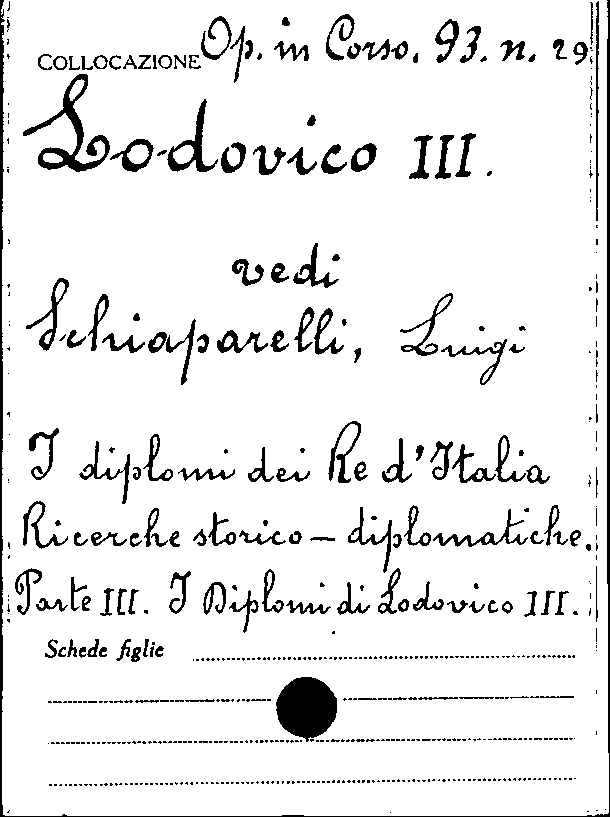 COLLOCAZIONE Op. in Corso. 93. n. 29
Lodovico III.
vedi
Schiaparelli, Luigi
I diplomi dei Re d'Italia
Ricerche storico - diplomatiche.
Parte III. I Diplomi di Lodovico III.
Schede figlie